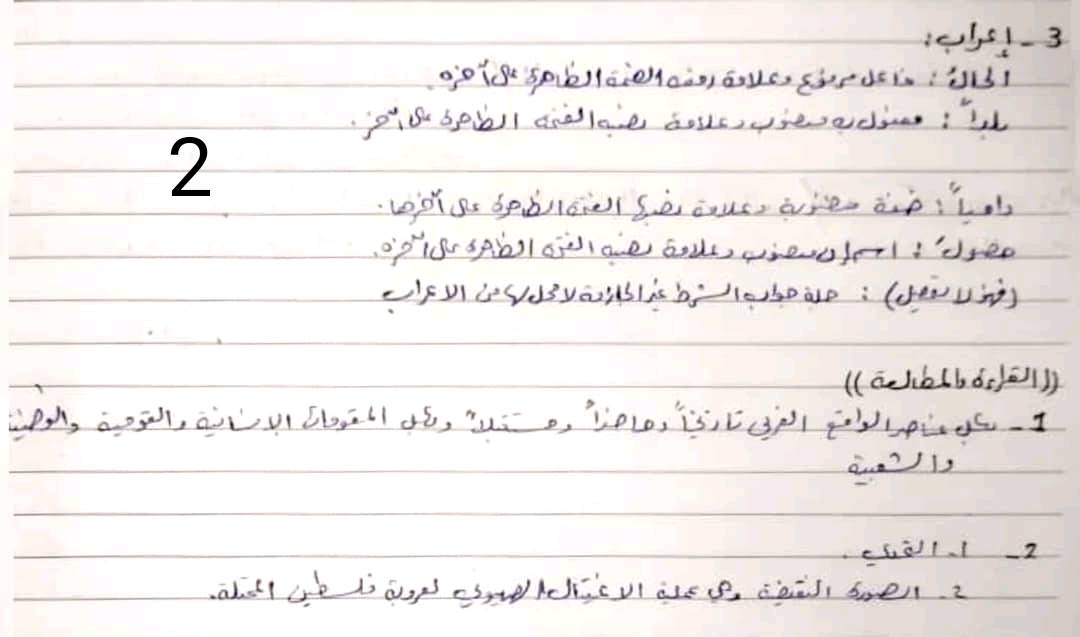 3 - إعراب:
المالُ: فاعل مرفوع وعلامة رفعه الضمة الظاهرة على آخره.
بلداً: مفعول به منصوب وعلامة نصبه الفتحة الظاهرة على آخر.
2
دامياً: صفة منصوبة وعلامة نصبها الفتحة الظاهرة على آخرها.
اسم إن منصوب وعلامة نصبه الفتحة الظاهرة على آخره.
(فهو لا): جملة جواب الشرط غير الجازمة لا محل لها من الاعراب
((القراءة والمطالعة))
1 - بكل عناصر الواقع العربي تاريخاً وحاضراً ومستقبلاً وبكل المقومات الإنسانية والقومية والوطنية
والشعبية
2 - 1.
2. الصورة النقيضة وهي عملية الاغتيال الصهيوني لعروبة فلسطين المحتلة.